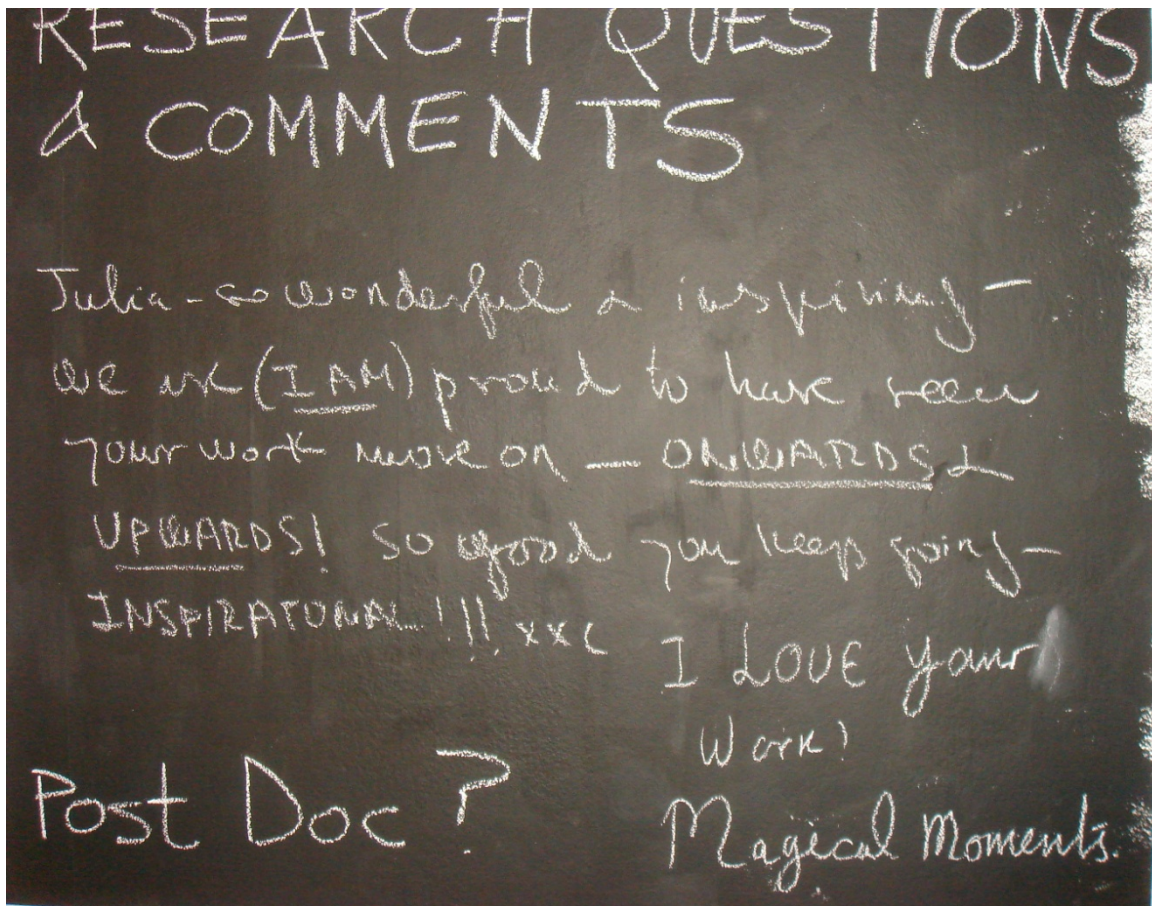 RESEARCH QUESTIONS
& COMMENTS
Julia - so wonderful & inspiring -
we are (I AM) proud to have seen
your work move on - ONWARDS &
UPWARDS! so good you keep going -
INSPIRATIONAL!!! xx
I LOVE your
work!
Post Doc?
Magical Moments.